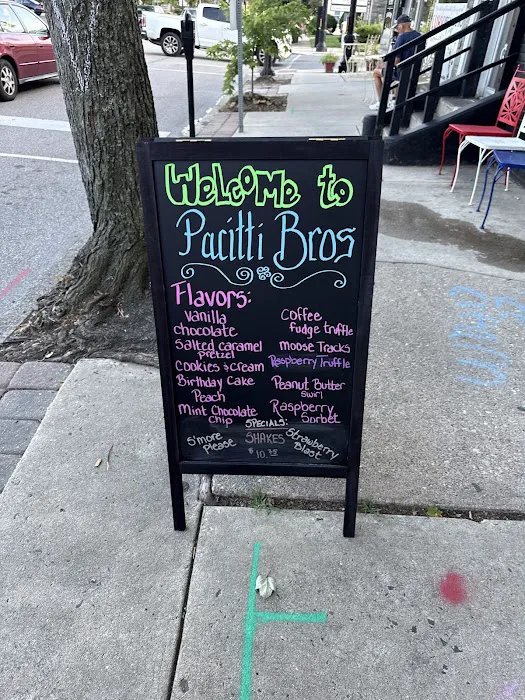 Welcome to
Pacitti Bros
Flavors:
vanilla
chocolate
salted caramel
pretzel
cookies & cream
Birthday Cake
Peach
Mint Chocolate
chip
Coffee
fudge truffle
moose Tracks
Raspberry Truffle
Peanut Butter
swirl
Raspberry
Sorbet
SPECIALS:
S'more
Please
SHAKES
Strawberry
Blast